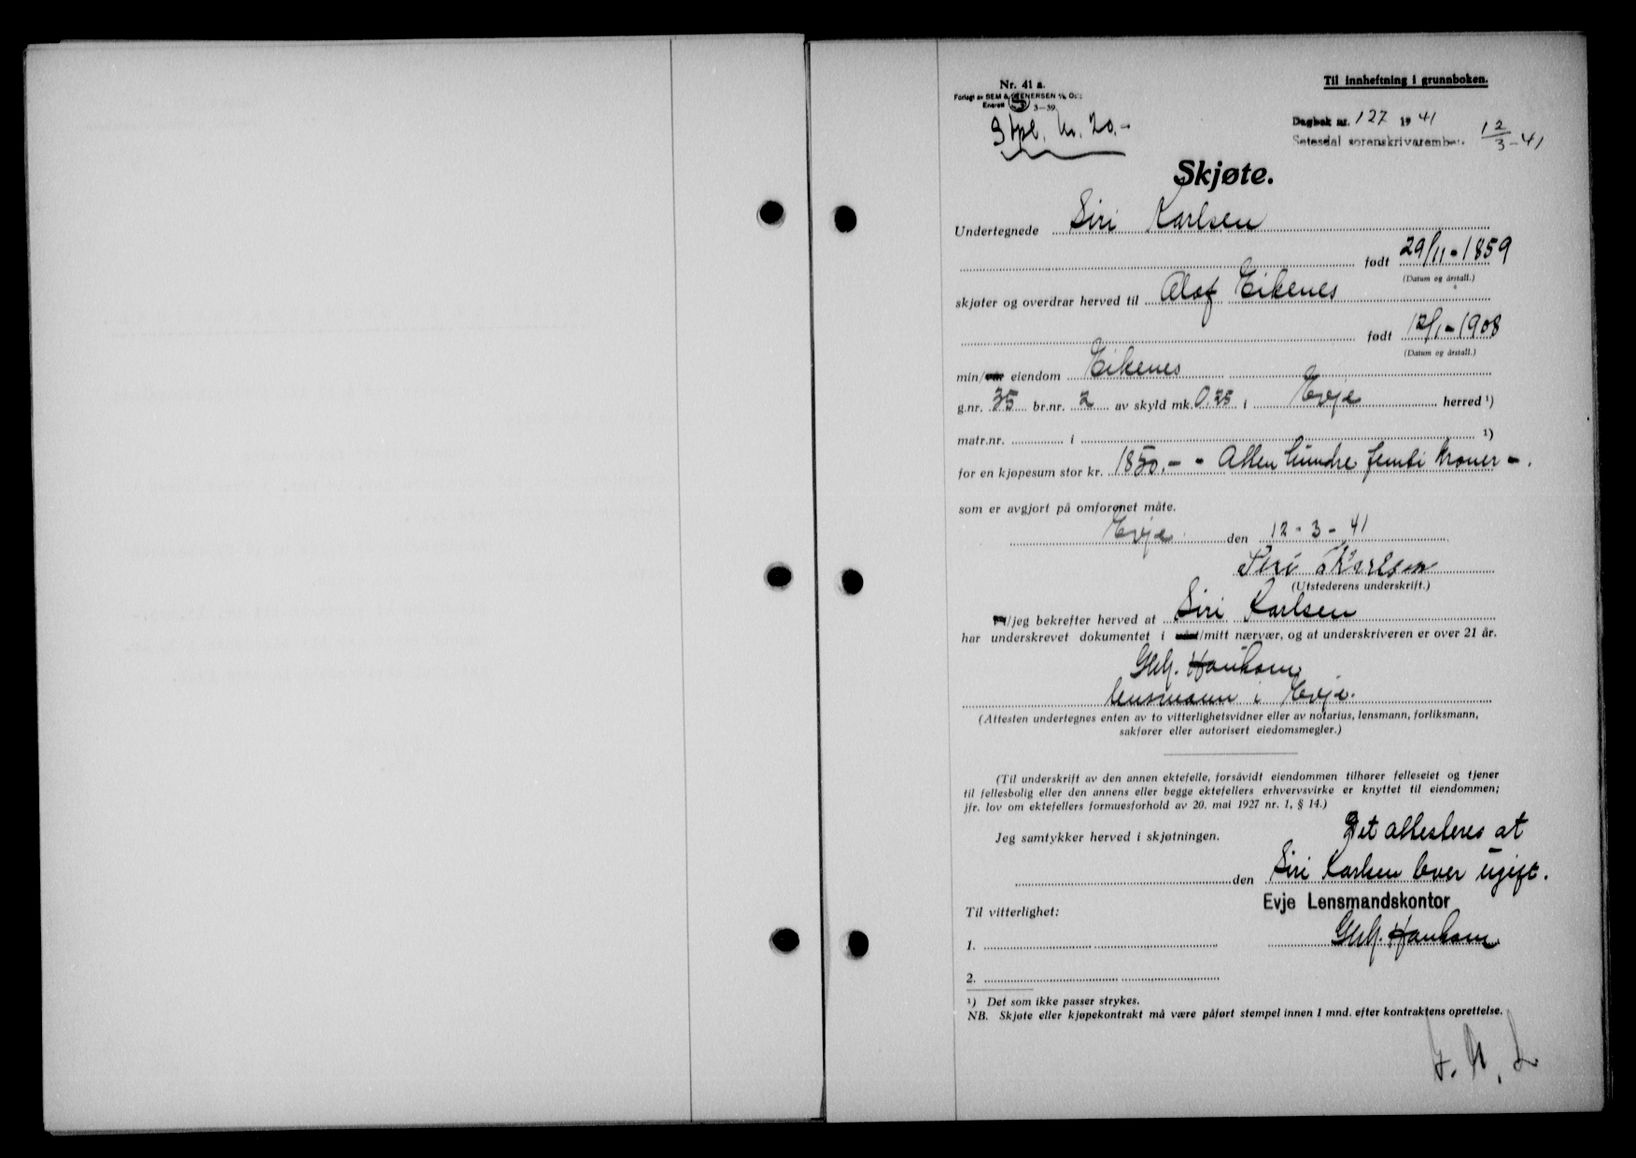 Nr. 41 a.
Til innheftning i grunnboken.
Stpl. kr. 20.-
Dagbok nr. 127 1941
Setesdal sorenskriverembe 12/3-41
Skjøte.
Undertegnede Siri Karlsen
født 29/11-1859
(Datum og årstall.)
skjøter og overdrar herved til Olaf Eikenes
født 12/1-1908
(Datum og årstall.)
min/vår eiendom Eikenes
g.nr. 35 br.nr. 2 av skyld mk. 0.25 i Evje herred ¹)
matr.nr. i ¹)
for en kjøpesum stor kr. 1850.- - Atten hundre femti kroner -.
som er avgjort på omforenet måte.
Evje den 12-3-41
Siri Karlsen
(Utstederens underskrift.)
Vi/jeg bekrefter herved at Siri Karlsen
har underskrevet dokumentet i vårt/mitt nærvær, og at underskriveren er over 21 år.
lensmann i Evje.
(Attesten undertegnes enten av to vitterlighetsvidner eller av notarius, lensmann, forliksmann,
sakfører eller autorisert eiedomsmegler.)
(Til underskrift av den annen ektefelle, forsåvidt eiendommen tilhører felleseiet og tjener
til fellesbolig eller den annens eller begge ektefellers erhvervsvirke er knyttet til eiendommen;
jfr. lov om ektefellers formuesforhold av 20. mai 1927 nr. 1, § 14.)
Jeg samtykker herved i skjøtningen.
Det attesteres at
den Siri Karlsen lever ugift.
Evje Lensmandskontor
Til vitterlighet:
1.
2.
¹) Det som ikke passer strykes.
NB. Skjøte eller kjøpekontrakt må være påført stempel innen 1 mnd. efter kontraktens oprettelse.